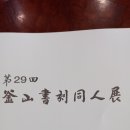 第29回
釜山書刻同人展